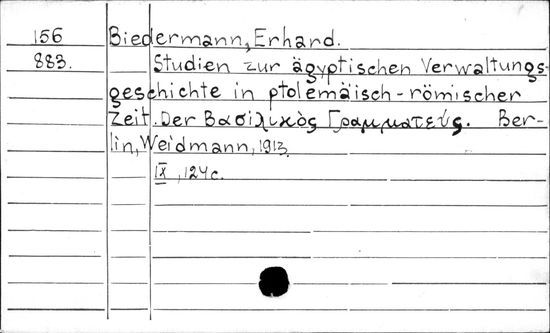 156 Biedermann, Erhard.
883. Studien zur ägyptischen Verwaltungs-
geschichte in ptolemäisch-römischer
Zeit. Der Βασιλικὸς Γραμματεύς. Ber-
lin, Weidmann, 1913.
IX, 124 c.